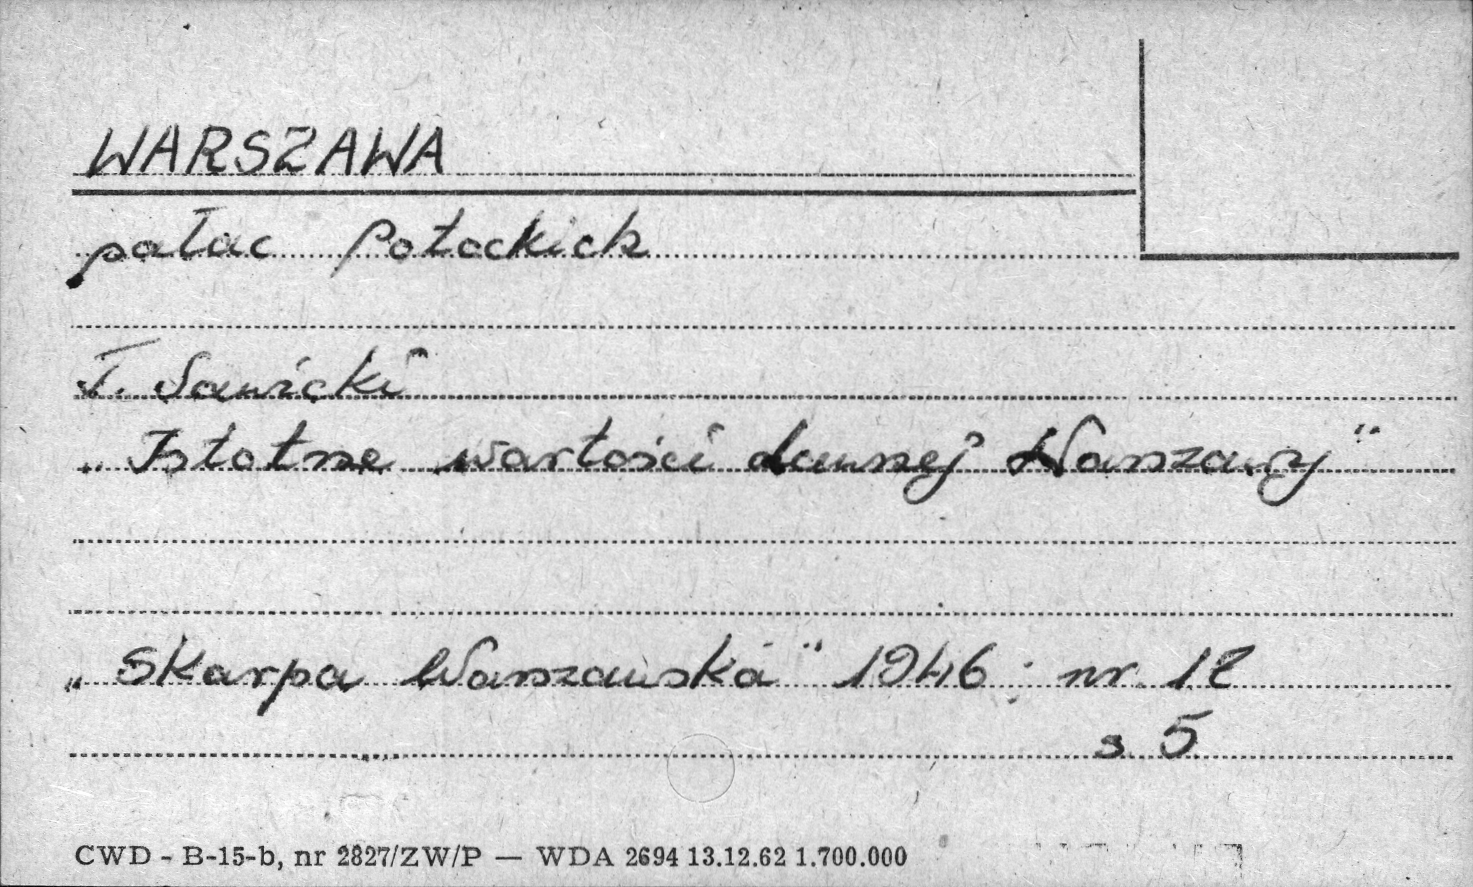 WARSZAWA
pałac Potockich
T. Sawicki
„Istotne wartości dawnej Warszawy”
„Skarpa Warszawska” 1946 nr. 12
s. 5
CWD - B-15-b, nr 2827/ZW/P — WDA 2694 13.12.62 1.700.000